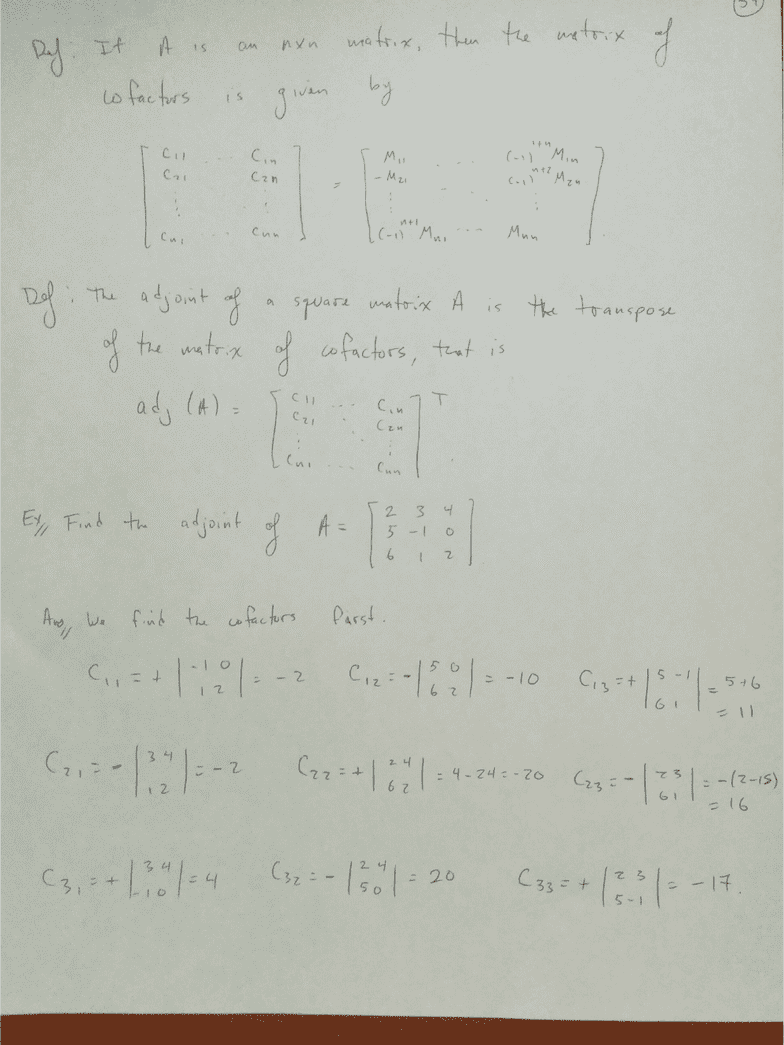 39
Def: If A is an nxn matrix, then the matrix of
cofactors is given by
[ C11 ... C1n ] = [ M11 ... (-1)^1+n M1n ]
[ C21 C2n ] [ -M21 (-1)^n+2 M2n ]
[ ⋮ ⋱ ⋮ ] [ ⋮ ⋱ ⋮ ]
[ Cn1 ... Cnn ] [ (-1)^n+1 Mn1 ... Mnn ].
Def: The adjoint of a square matrix A is the transpose
of the matrix of cofactors, that is
adj (A) = [ C11 ... C1n ] T
[ C21 ⋱ C2n ]
[ ⋮ ⋮ ]
[ Cn1 ... Cnn ].
Ex// Find the adjoint of A = [ 2 3 4 ]
[ 5 -1 0 ]
[ 6 1 2 ]
Ans// We find the cofactors first.
C11 = + | -1 0 | = -2 C12 = - | 5 0 | = -10 C13 = + | 5 -1 | = 5+6
| 1 2 | | 6 2 | | 6 1 | = 11
C21 = - | 3 4 | = -2 C22 = + | 2 4 | = 4-24 = -20 C23 = - | 2 3 | = -(2-15)
| 1 2 | | 6 2 | | 6 1 | = 16
C31 = + | 3 4 | = 4 C32 = - | 2 4 | = 20 C33 = + | 2 3 | = -17.
| -1 0 | | 5 0 | | 5 -1 |